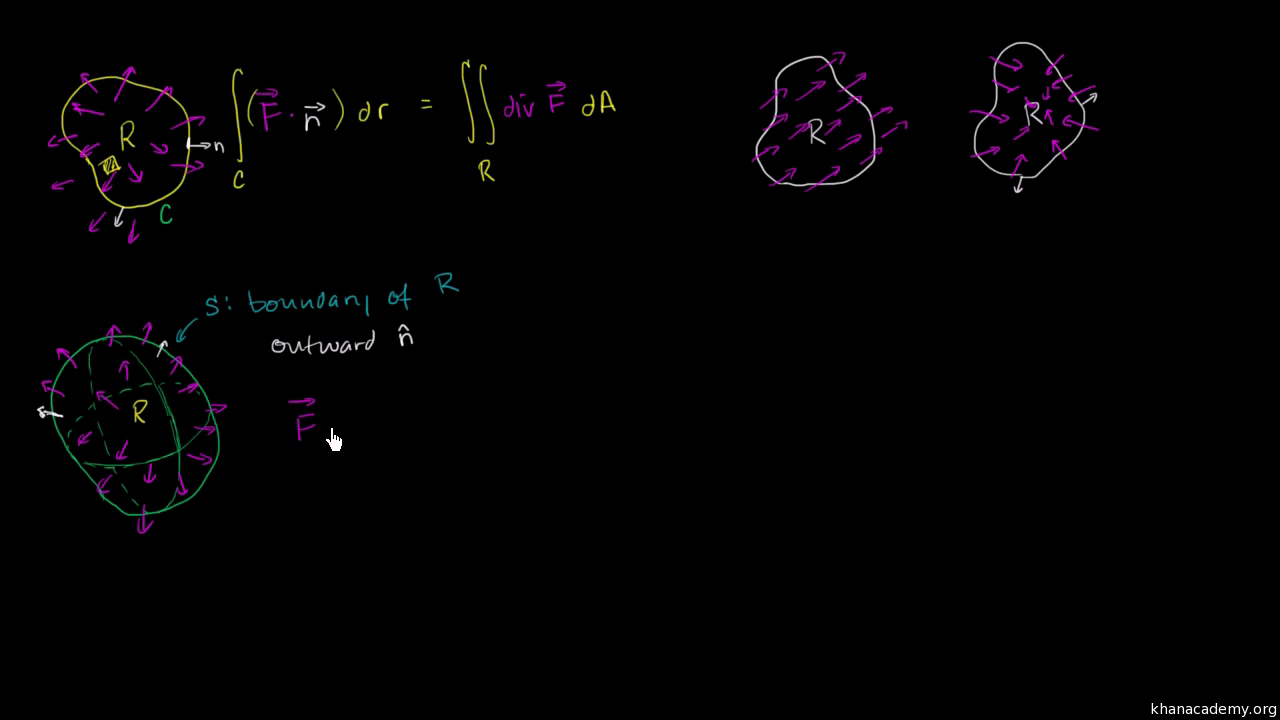 R
n
C
∫_C (F⃗ · n⃗) dr = ∬_R div F⃗ dA
R
R
S: boundary of R
outward n̂
R
F⃗
khanacademy.org